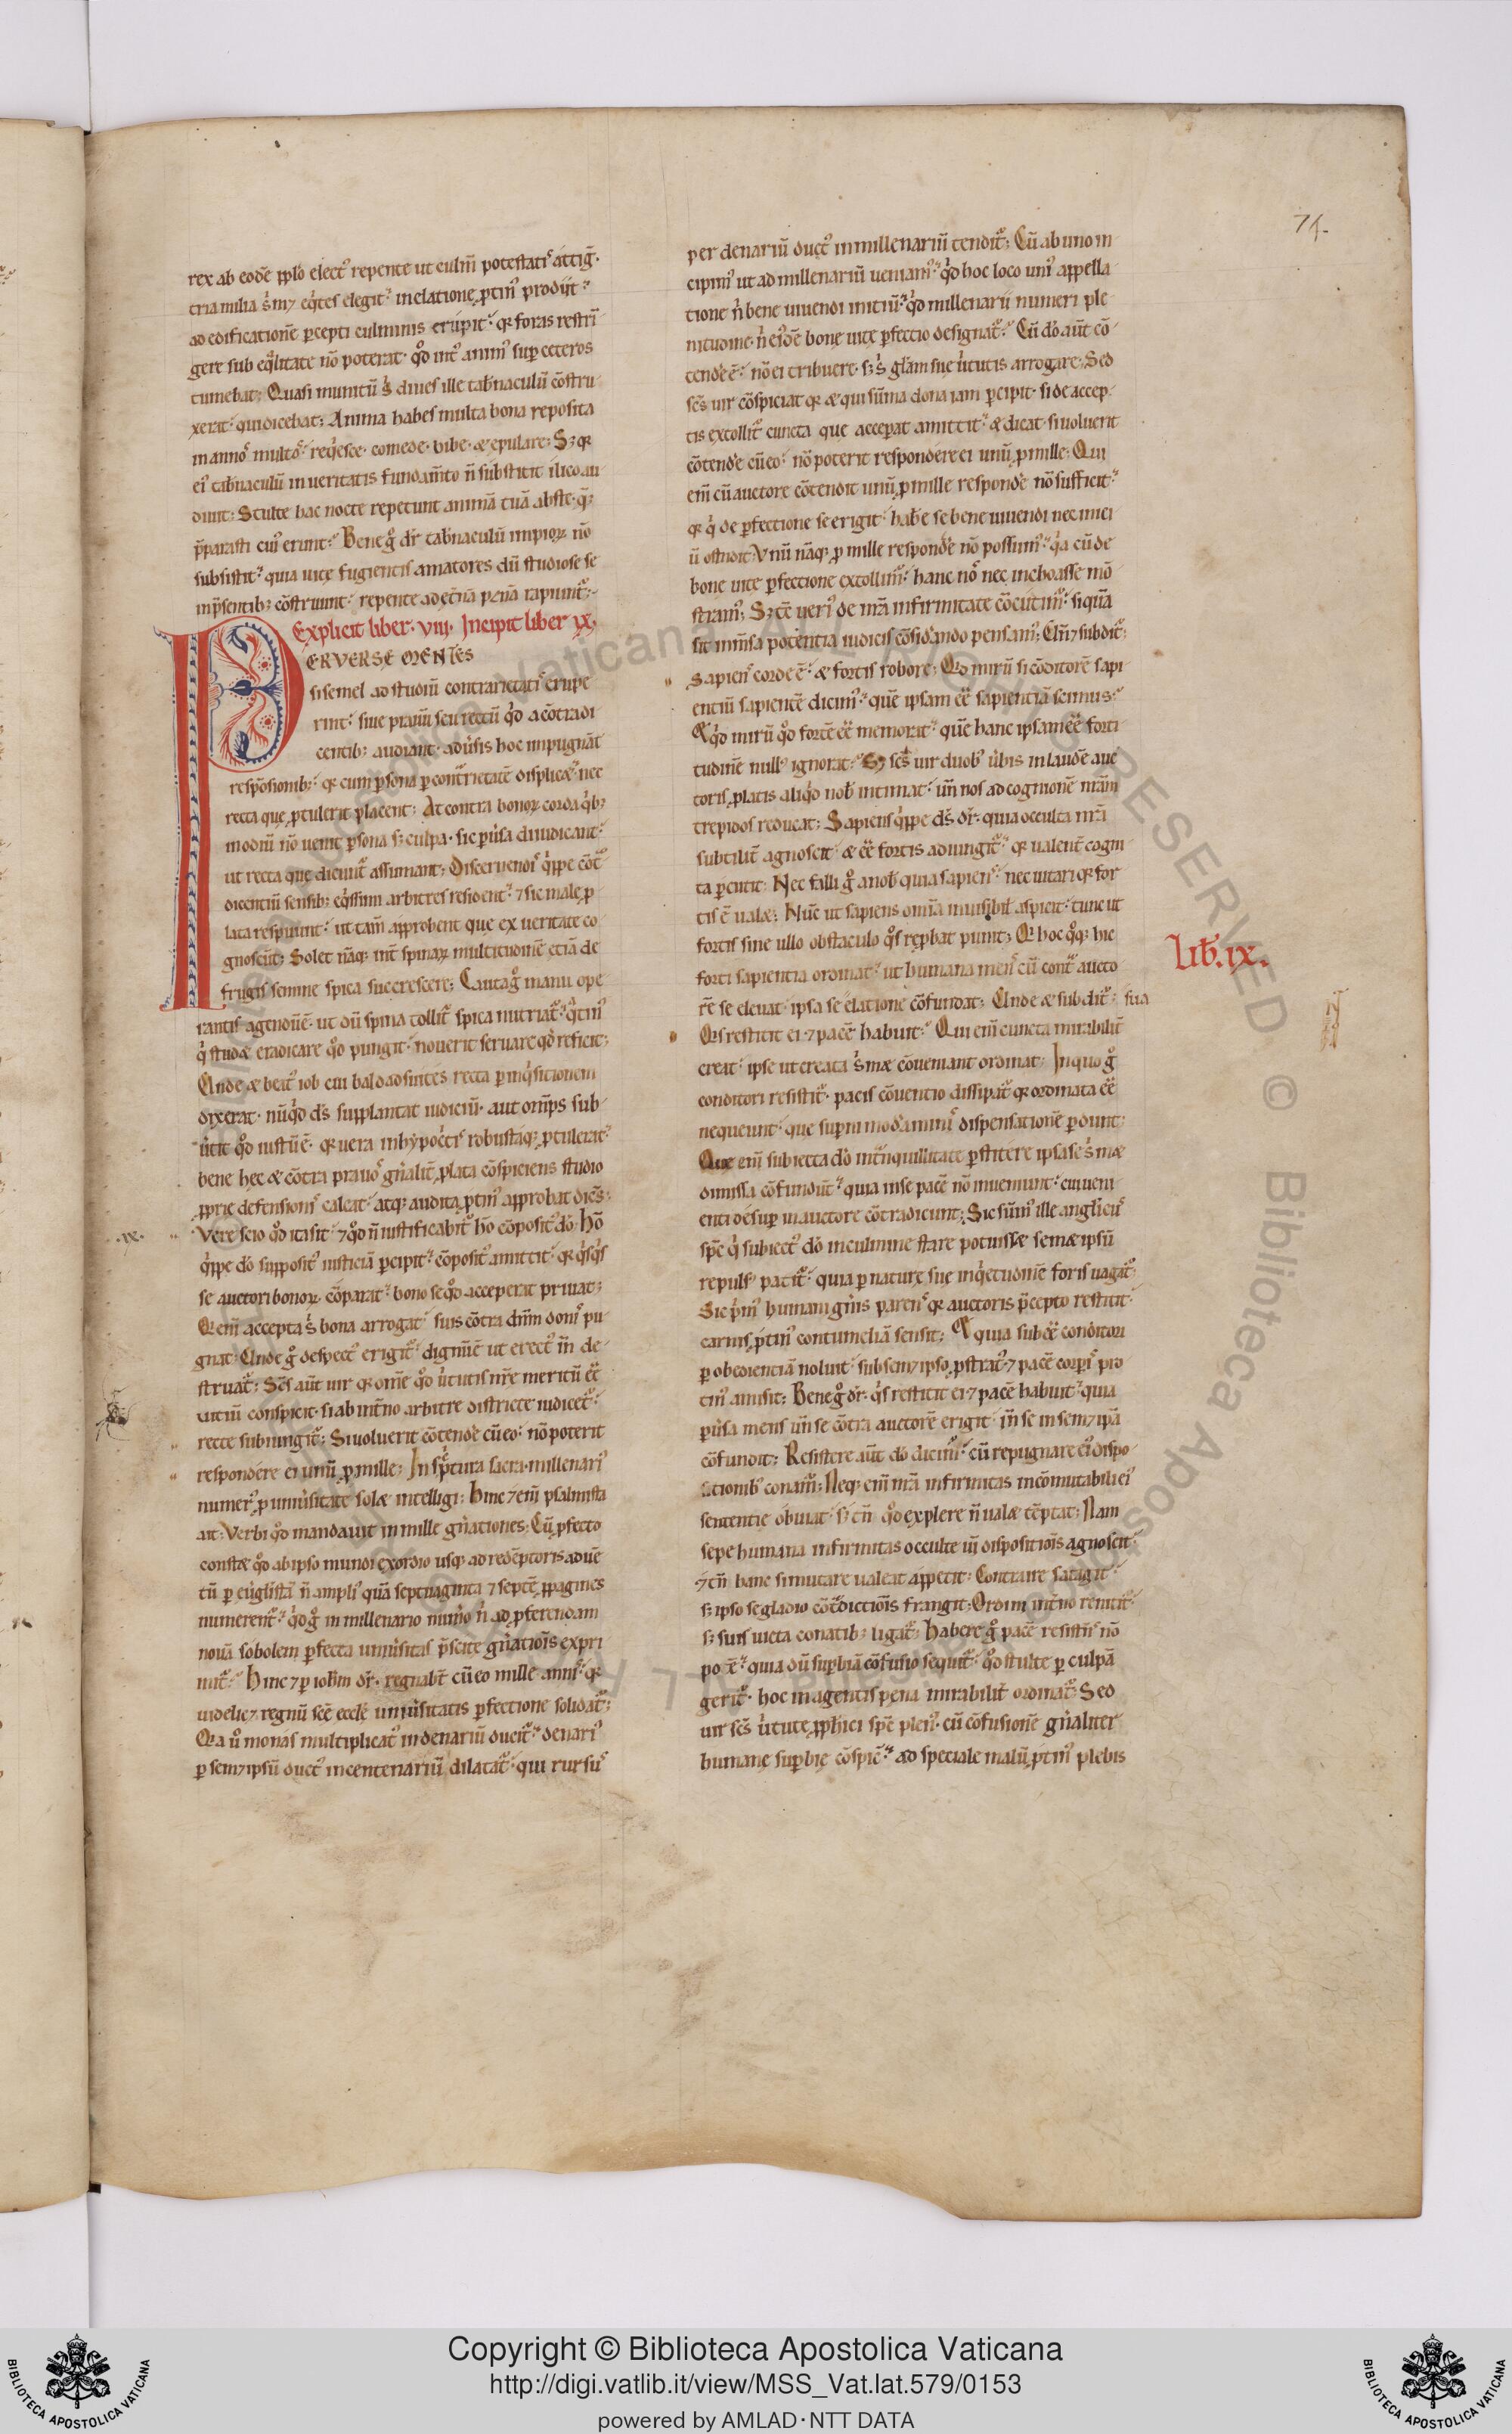 71.
rex ab eodē pplo elect᷒ repente ut culm̄ potestati᷒ attiḡ·
tria milia s᷒ mꝫ eq̇tes elegit᷒· in elatione ꝓtin᷒ prodiit᷒
ad edificationē ꝑcepti culminis erupit᷒· qꝛ foras restrī
gere sub eq̄litate nō poterat· qd̊ int᷒ anim᷒ suꝑ ceteros
tumebat; Quasi munitū s᷒ diues ille tab̄naculū cōstru
xerat᷒· qui dicebat; Anima habes multa bona reposita
in anno᷒ multo᷒· req̇esce· comede· bibe· æ epulare; Sꝫ qꝛ
ei᷒ tab̄naculū in ueritatis fundam̄to n̄ substitit ilico au
diuit; Stulte hac nocte repetunt animā tuā abs te· q̄ꝫ
p̄parasti cui᷒ erunt᷒· Bene g̊ dr̄ tab̄naculū impioꝝ nō
subsistit᷒· quia uitę fugientis amatores dū studiose se
in p̄sentibꝫ cōstruunt᷒· repente ad ęt̄nā pęnā rapiunt᷒;
Explicit liber· viii· Incipit liber ix·
PERVERSE MENTES
si semel ad studiū contrarietati᷒ erupe
rint᷒· siue prauū seu rectū qd̊ a cōtradi
centibꝫ audiant· adu᷒sis hoc impugnāt
respōsionibꝫ᷒· qꝛ cum ꝑsona ꝑ contrarietatē displicæ᷒· nec
recta que ꝓtulerit placent; At contra bonoꝝ corda q̇bꝫ
in odiū nō uenit ꝑsona sꝫ culpa· sic ꝑu᷒sa diiudicant᷒·
ut recta quę dicunt᷒ assumant; Discernendi᷒ q̇ppe cōt᷒
dicentiū sensibꝫ eq̇ssimi arbitres resident᷒· ⁊ sic male ꝓ
lata respuunt᷒· ut tam̄ approbent que ex ueritate co
gnoscūt; Solet nāqꝫ int̄ spinaꝝ multitudinē ęciā de
frugis semine spica succrescere; Cauta g̊ manu ope
rantis agendū ē· ut dū spina tollit᷒ spica nutriat᷒· q̇tin᷒
q̇ studæ eradicare qd̊ pungit᷒· nouerit seruare qd̊ reficit;
Unde æ beat᷒ iob cui baldad suites recta ꝑ inq̇sitionem
dixerat· nūq̇d ds̄ supplantat iudiciū· aut om̄ps sub
u᷒tit qd̊ iustū ē· qꝛ uera in hypoc̄tis robustaqꝫ ꝓtulerat᷒·
bene hec æ cōtra prauo᷒ gn̄alit̄ ꝓlata cōspiciens studio
ꝓprie defensioni᷒ calcat᷒· atqꝫ audita ꝓtin᷒ approbat dicēs;
Vere scio qd̊ ita sit᷒· ⁊ qd̊ n̄ iustificabit᷒ hō cōposit᷒ dō; Hō
·ix·
q̇ppe dō supposit᷒ iusticiā ꝑcipit᷒· cōposit᷒ amittit᷒· qꝛ q̇sq̇s
se auctori bonoꝝ cōparat᷒· bono se qd̊ acceperit priuat;
Q. em̄ accepta s᷒ bona arrogat᷒· suis cōtra dm̄ doni᷒ pu
gnat; Unde g̊ despect᷒ erigit᷒· dignū ē ut erect᷒ in de
struat᷒; Scs̄ aut̄ uir qꝛ om̄e qd̊ u᷒tutis nr̄e meritū eē
uitiū conspicit· si ab int̄no arbitre districte iudicet᷒·
recte subiungit᷒; Si uoluerit cōtende᷒ cū eo᷒· nō poterit
respondere ei unū ꝓ mille; In sc̄ptura sacra millenari᷒
numer᷒ ꝓ uniu᷒sitate solæ intelligi; Hinc ⁊ em̄ psalmista
ait; Verbi qd̊ mandauit in mille gn̄ationes; Cū ꝓfecto
constæ qd̊ ab ipso mundi exordio usqꝫ ad redēptoris aduē
tū ꝑ euglistā n̄ ampli᷒ quā septuaginta ⁊ septē ꝓpagines
numerent᷒· q̇d g̊ in millenario num̄o n᷒ ad ꝓferendam
nouā sobolem ꝑfecta uniu᷒sitas p̄scite gn̄atiois expri
mit᷒· Hinc ⁊ ꝑ ioh̄m dr̄· regnabt̄ cū eo mille anni᷒· qꝛ
uidelicꝫ regnū scē eccl̄e uniu᷒sitatis ꝑfectione solidat᷒;
Q.a u̇ monas multiplicat᷒ in denariū ducit᷒· denari᷒
ꝑ semꝫ ipsū duct᷒ in centenariū dilatat᷒· qui rursu᷒
per denariū duct᷒ in millenariū tendit᷒; Cū ab uno in
cipim᷒ ut ad millenariū ueniam᷒· q̇d hoc loco uni᷒ appella
tione n᷒ bene uiuendi initiū᷒· q̇d millenarii numeri ple
nitudine· n᷒ ei᷒dē bonę uitę ꝑfectio designat᷒· Cū dō aut̄ cō
tende᷒ ē᷒· nō ei tribuere· sꝫ s᷒ gl̄am suę u᷒tutis arrogare; Sed
scs̄ uir cōspiciat qꝛ æ qui sūma dona iam ꝑcipit· si de accep
tis extollit᷒ cuncta que acceperat amittit᷒· æ dicat· si uoluerit
cōtende᷒ cū eo᷒· nō poterit respondere ei unū ꝓ mille; Qui
em̄ cū auctore cōtendit unū ꝓ mille responde᷒ nō sufficit᷒·
qꝛ q̇ de ꝑfectione se erigit᷒· habe᷒ se bene uiuendi nec inici
ū ostendit; Unū nāqꝫ ꝓ mille responde᷒ nō possum᷒· q̇a cū de
bone uite ꝑfectione extollim᷒· hanc no᷒ nec inchoasse mō
stram᷒; Sꝫ tē᷒ ueri᷒ de nr̄a infirmitate cōcutim᷒· si quā
sit im̄sa potentia iudicis cōsid̄ando pensam᷒; Un̄ ⁊ subdit᷒;
Sapien᷒ corde ē᷒· æ fortis robore; Q.d mirū si cōditorē sapi
entiū sapientē dicim᷒· quē ipsam eē sapientiā scimus᷒·
Et q̇d mirū qd̊ fortē eē memorat᷒· quē hanc ipsam eē forti
tudinē null᷒ ignorat᷒· Sꝫ scs̄ uir duob᷒ u᷒bis in laudē auc
toris ꝓlatis aliq̇d nob̄ intimat᷒· un̄ nos ad cognitionē nr̄am
trepidos reducat; Sapiens q̇ppe ds̄ dr̄᷒· quia occulta nr̄a
subtilit̄ agnoscit᷒· æ eē fortis adiungit᷒· qꝛ ualent̄ cogni
ta ꝑcutit; Nec falli g̊ a nob̄ quia sapien᷒· nec uitari qꝛ for
tis ē ualæ; Nūc ut sapiens om̄a inuisibil᷒ aspicit᷒· tunc ut
fortis sine ullo obstaculo q̊s reprobat punit; Q. hoc q̊qꝫ hic
forti sapientia ordinat᷒· ut humana men᷒ cū contra aucto
Lib̄. ix·
rē se eleuat· ipsa se elatione cōfundat; Unde æ subdit᷒; sua
Q.s restitit ei· ⁊ pacē habuit᷒· Qui em̄ cuncta mirabilit̄
creat᷒· ipse ut creata s᷒ mæ cōueniant ordinat; In quo g̊
conditori resistit᷒· pacis cōuentio dissipat᷒ qꝛ ordinata eē
nequeunt᷒· que suꝑni mod̄amini᷒ dispensationē ꝑdunt;
Que em̄ subiecta dō in t̄nquillitate ꝑstitere ipsa se s᷒mæ
dimissa cōfundūt᷒· quia in se pacē nō inueniunt᷒· cui ueni
enti desuꝑ in auctore cōtradicunt; Sic sūm᷒ ille angl̄icu᷒
spc̄ q̇ subiect᷒ dō in culmine stare potuisset semæ ipsū
repuls᷒ patit᷒· quia ꝑ naturę suę inq̇etudinē foris uagat᷒;
Sic ṗm᷒ humani gn̄is paren᷒ qꝛ auctoris p̄cepto restitit᷒·
carnis ꝓtin᷒ contumeliā sensit; Et quia subd᷒ eē conditori
ꝑ obedientiā noluit᷒· sub semꝫ ipso ꝓstrat᷒· ⁊ pacē corꝑi᷒ pro
tin᷒ amisit; Bene g̊ dr̄· q̇s restitit ei· ⁊ pacē habuit᷒· quia
ꝑu᷒sa mens un̄ se cōtra auctorē erigit᷒· in se in semꝫ ipā
cōfundit; Resistere aut̄ dō dicim᷒· cū repugnare ei᷒ dispo
sitionib᷒ conam᷒; Neqꝫ em̄ nr̄a infirmitas incōmutabili ei᷒
sententie obuiat᷒· sꝫ tn̄ qd̊ explere n̄ ualæ tēptat; Nam
sepe humana infirmitas occulte uī dispositiois agnoscit᷒·
⁊ tn̄ hanc si mutare ualeat appetit; Contraire satagit᷒·
sꝫ ipso se gladio cōtdictiois frangit; Ordini int̄no renitit᷒·
sꝫ suis uicta conatibꝫ ligat᷒; Habere g̊ pacē resistn̄s nō
potē᷒· quia dū suꝑbiā cōfusio seq̇t᷒· qd̊ stulte ꝑ culpā
gerit᷒· hoc in agentis pena mirabilit̄ ordinat᷒; Sed
uir scs̄ u᷒tute ꝓph̄ici sp̄c plen᷒· cū cōfusionē gn̄aliter
humanę suꝑbię cōspic̄᷒· ad speciale malū ꝓtin᷒ plebis
Copyright © Biblioteca Apostolica Vaticana
http://digi.vatlib.it/view/MSS_Vat.lat.579/0153
powered by AMLAD·NTT DATA
BIBLIOTECA APOSTOLICA VATICANA
BIBLIOTECA APOSTOLICA VATICANA